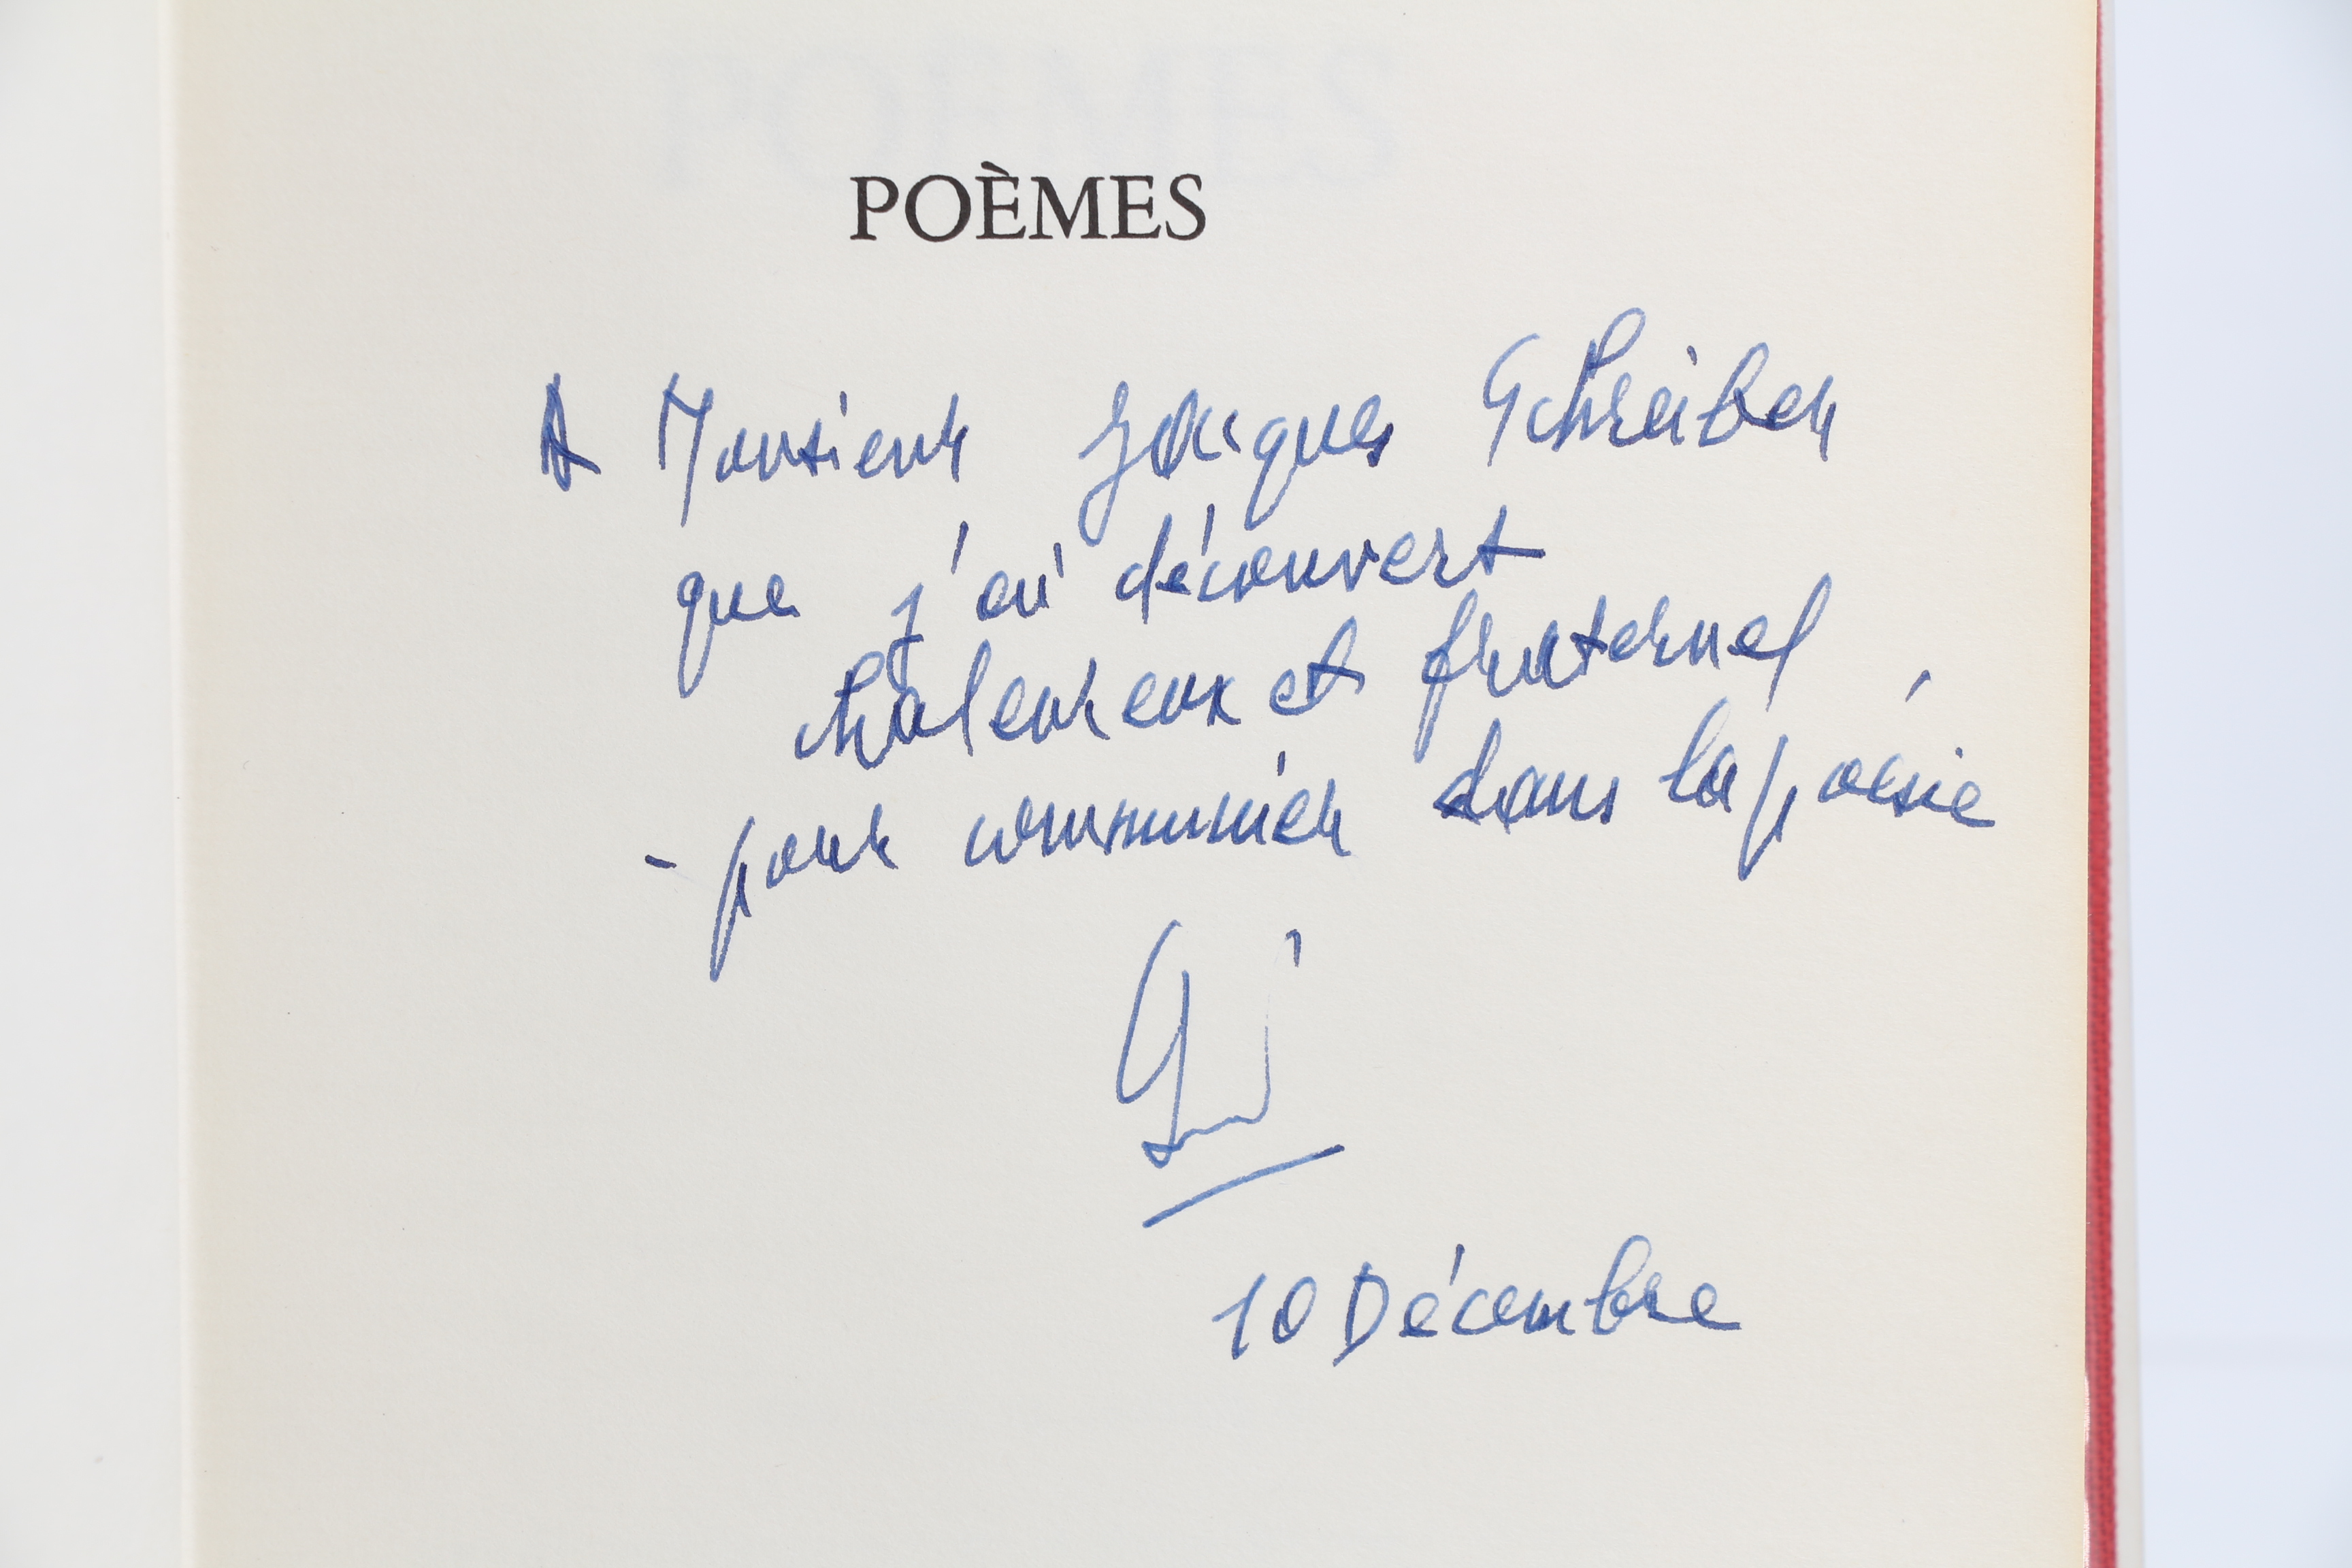 POÈMES
A Monsieur Jacques Schreiber
que j'ai découvert
chaleureux et fraternel
- pour communier dans la poésie
10 Décembre